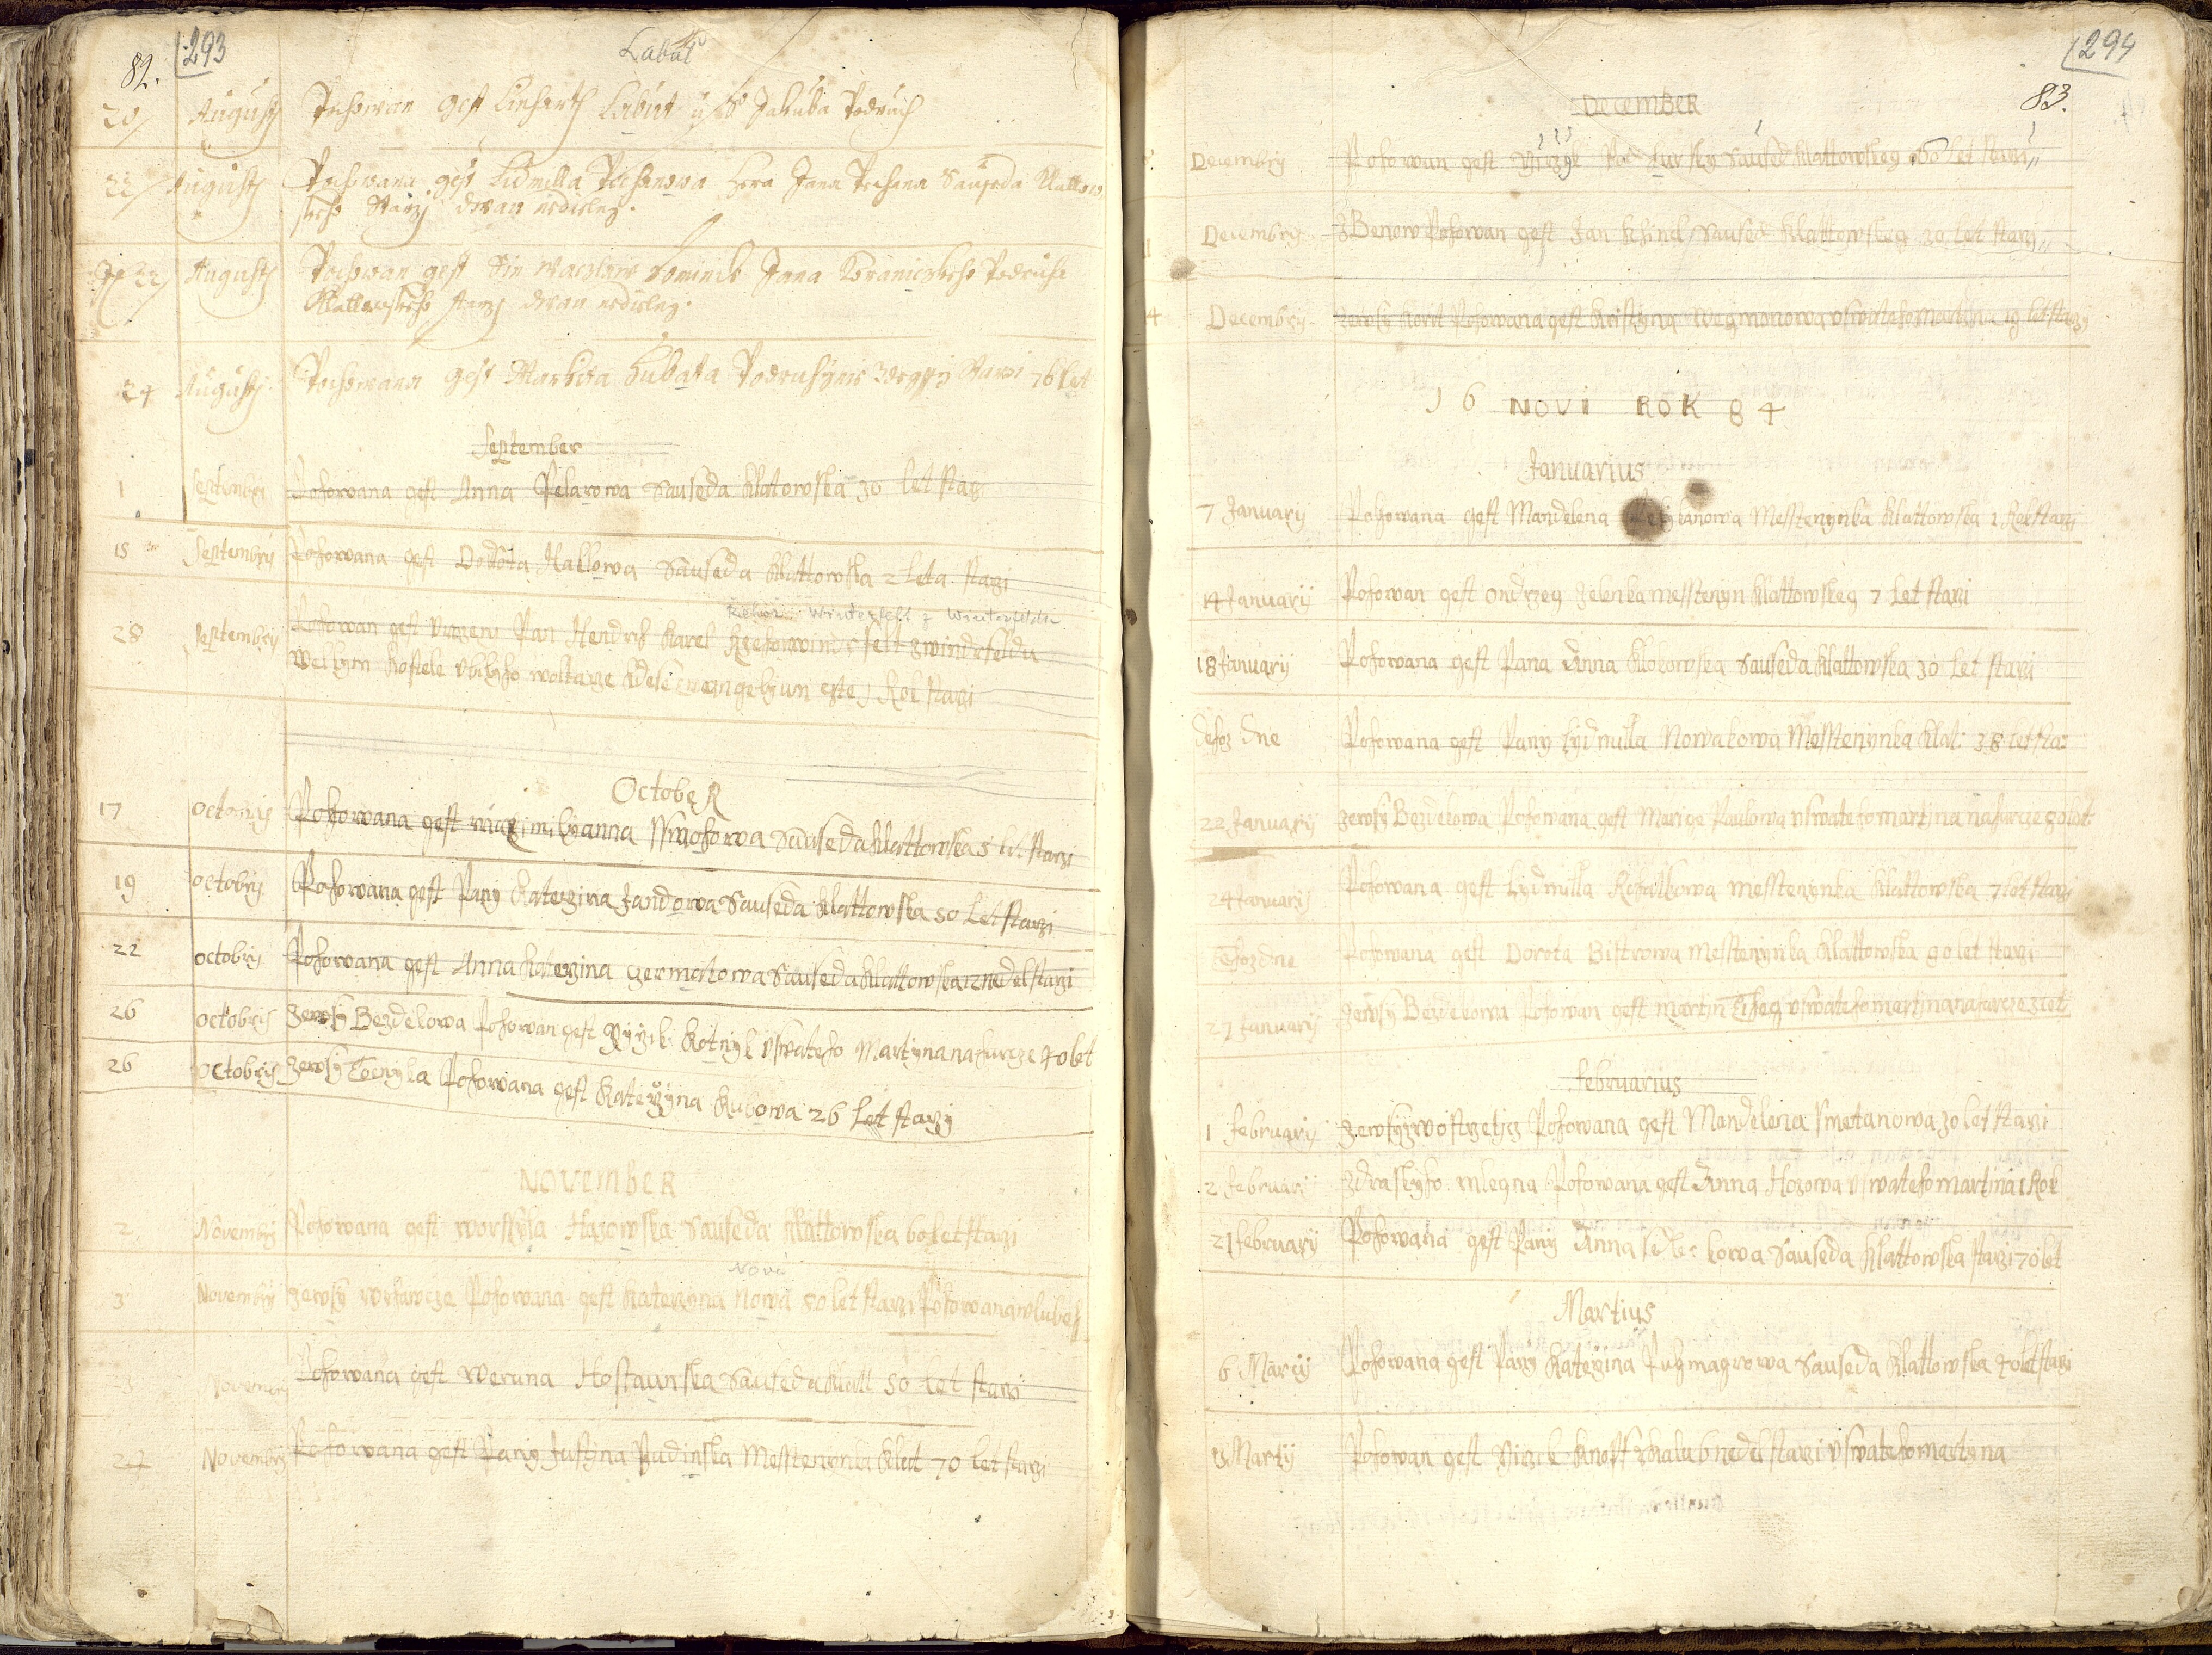 293
82.
Labut
20/ Augusti Pochowan gest Linhartt Labut u Jakuba Podruch
22/ Augusti Pochowana gest Lidmilla Pechanowa Jana Pechana Sauseda Klattow
skeho Starzj dwau nedieleg.
Augusti Pochowan gest Sin Waczlaw Dominik Jana Podruha
Klattowskeho starzj dwau nedieleg.
24 Augusti Pochowana gest Markita Kubata Podruhynie Starzi 76 Let
September
1 Septembri Pohowana gest Anna Pelarowa Sauseda Klatowska 30 let starzi
15 Septembrij Pohowana gest Dorota Hallowa Sauseda Klattowska 2 leta starzi
Winterfeld z Winterfeldu
28 Septembrij Pohowan gest Urozeni Pan Hendrich Karel zwindrfeldu
welkym Kostele woltarze kdese ewangelyum cžte 1 Rok starzi
October
17 octobris Pohowana gest maximilyanna Ssmohowa Sauseda Klattowska 5 let starzi
19 octobrij Pohowana gest Pany Katerzina Jandowa Sauseda Klattowska 50 Let starzi
22 octobrij Pohowana gest Anna Katerzina czermakowa Sauseda Klattowska 12 nedel starzi
26 octobris Zewsy Bezdekowa Pohowan gest Kotnyk Uswateho Martyna nahurcze 40 let
26 octobris Zewsy Tocnyka Pohowana gest Katerzyna Kubowa 26 Let starzy
November
2 Novembrij Pohowana gest worssyla Hazowska Sauseda Klattowska 60 let starzi
Nova
3 Novembrij Zewsy Pohowana gest Katerzyna Nowa 50 let starzi Pohowana wlubech
3 Novembrij Pohowana gest Weruna Hostaunska Sauseda Klatt 50 Let starzi
Novembrij Pohowana gest Pany Justyna Pudinska Messtenynka Klatt 70 let starzi
294
83.
December
Decembrij Pohowan gest Sauled Klattowskeg 60 let starzi
11 Decembrij ZBenow Pohowan gest Jan Sauled Klattowskeg 30 let starzi
14 Decembrij Pohowana gest Kristyna Wegmonowa Uswateho martyna 19 let starzy
16 NOVI ROK 84
Januarius
7 Januarij Pohowana gest Mandelena Messtenynka Klattowska 1 Rok starzi
14 Januarij Pohowan gest ondrzeg Zelenka messtenyn Klattowskeg 7 Let starzi
18 Januarij Pohowana gest Pana Anna Klokowska Sauseda Klattowska 30 Let starzi
dne Pohowana gest Pany Lydmilla Nowakowa Messtenynka Klat: 38 let sta:
22 Januarij Zewsy Bezdekowa Pohowana gest Marige Paulowa Uswateho martyna nahurcze 90 let
24 Januarij Pohowana gest Lydmilla messtenynka Klattowska 7 let starzi
Tehoz dne Pohowana gest Dorota Bistrowa Messtenynka Klattowska 80 let starzi
27 Januarij Zewsy Bezdekowa Pohowan gest martin Uswateho martyna nahurcze 3 let
Februarius
1 februarij Pohowana gest Mandelena Smetanowa 30 let starzi
2 februarij Zdraskyho mlegna Pohowana gest Anna Hozowa Uswateho martina 1 Rok
21 februarij Pohowana gest Pany Anna kowa Sauseda Klattowska starzi 70 let
Martius
6 Marcij Pohowana gest Pany Katerzina Puhmagrowa Sauseda Klattowska 40 let starzi
Martij Pohowan gest Girzik Knopf 6 nedel starzi Uswateho martyna